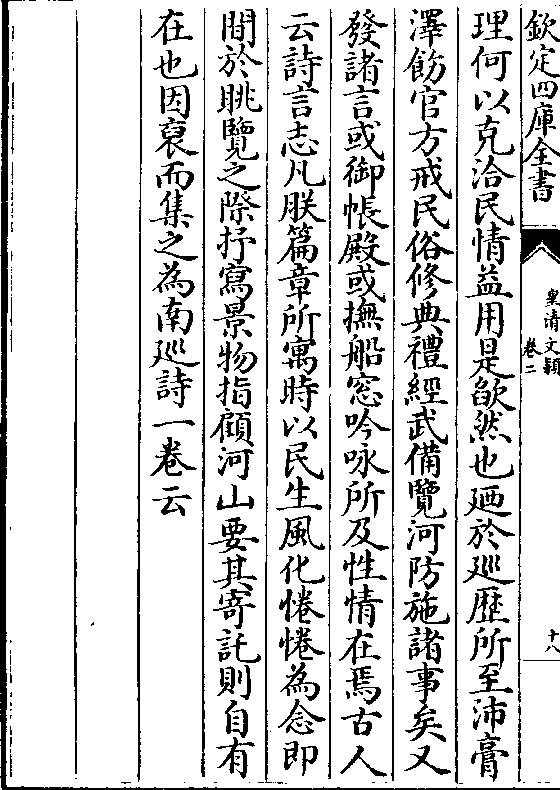 欽定四庫全書
皇清文穎
卷二
十八
理何以克洽民情益用是欿然也廼於廵歴所至沛膏
澤飭官方戒民俗修典禮經武備覽河防施諸事矣又
發諸言或御帳殿或撫船窓吟咏所及性情在焉古人
云詩言志凡朕篇章所寓時以民生風化惓惓為念即
間於眺覽之際抒寫景物指顧河山要其寄託則自有
在也因裒而集之為南廵詩一卷云